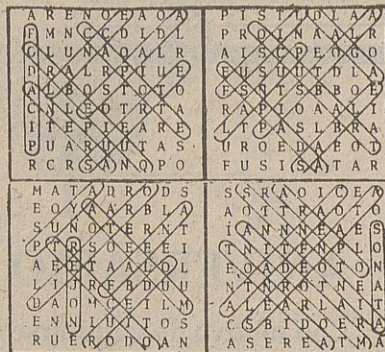 A R E N O E A O A
F M N C C D I D L
C L U N A Q A L R
D R A L R P I U E
A L B O S T O T O
C N L E O T R T A
I T E P I E A R E
P U A R U U T A S
R C R S A N Q P O
P I S T U O L A A
P R O I N A A L R
A I S C P E O G O
E U S U U T D L A
F S N T S B B O E
R A P I O A A T I
L T P A S L B R A
U R O E D A E O T
F U S I S A T A R
M A T A D R O D S
E O Y A A R B L A
S U N O T E R N T
P T R S O E E E I
A E E T A A L O L
L I J R E B D U U
D A O M C E I L M
E N N I U X T O S
R U E R O D O A N
S S R A O I C E A
A O T T R A O T O
I A N N N E A E S
T N I T E N P L O
E O A D E O T O N
I N T N R O T N E A
A L E A R L A I T
C S B I D O E R A
A S E R E A T M A